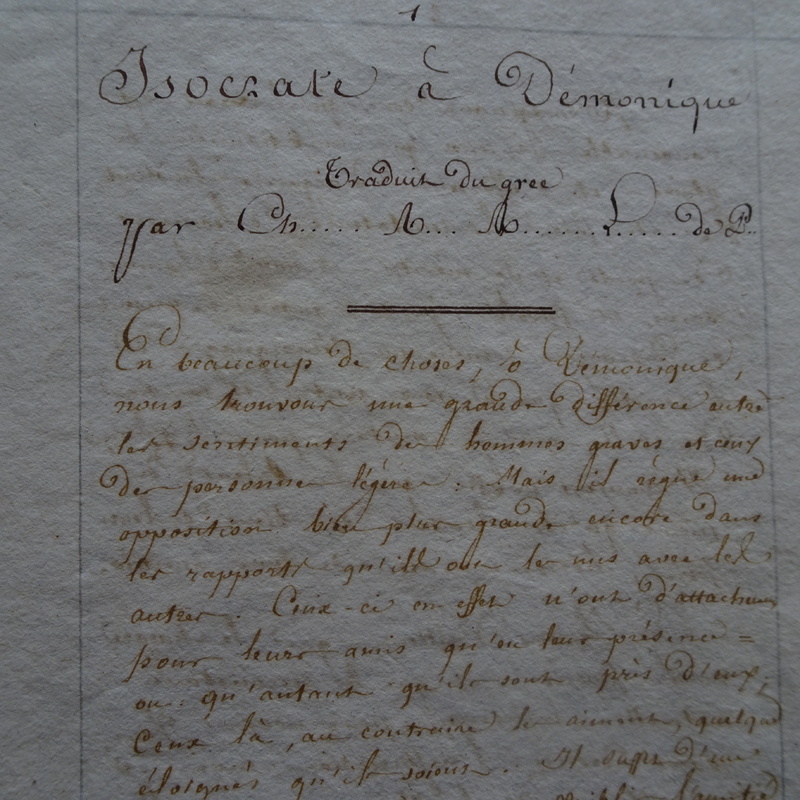 1
Isocrate à Démonique
Traduit du grec
par Ch..... A... M....... L..... de P..
En beaucoup de choses, ô Démonique,
nous trouvons une grande différence entre
les sentiments des hommes graves et ceux
des personnes légères. Mais il règne une
opposition bien plus grande encore dans
les rapports qu'ils ont les uns avec les
autres. Ceux-ci en effet n'ont d'attachement
pour leurs amis qu'en leur présence =
ou qu'autant qu'ils sont près d'eux;
Ceux là, au contraire les aiment, quelque
éloignés qu'ils soient. Il suffit d'une
l'amitié